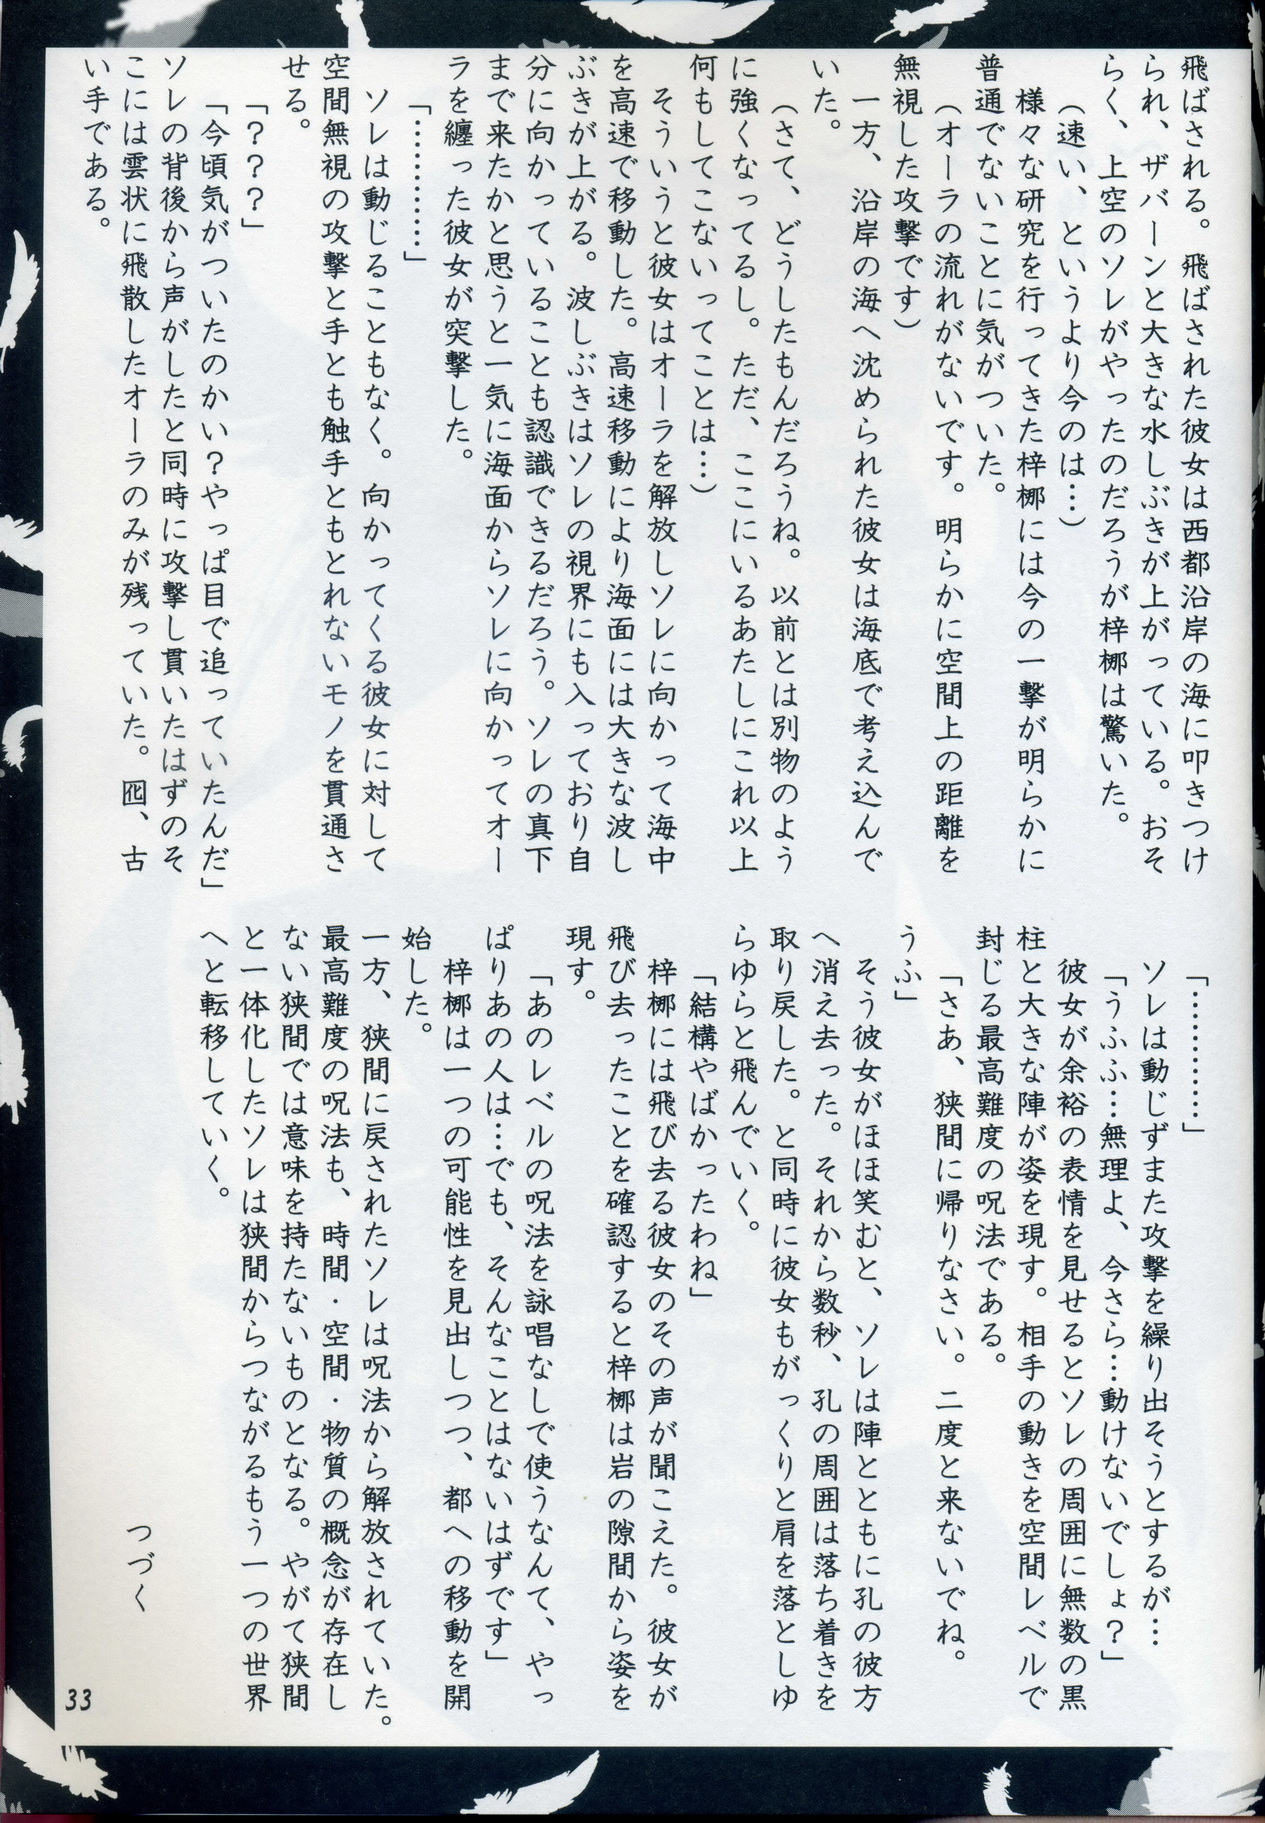 飛ばされる。飛ばされた彼女は西都沿岸の海に叩きつけ
られ、ザバーンと大きな水しぶきが上がっている。おそ
らく、上空のソレがやったのだろうが梓梛は驚いた。
（速い、というより今のは…）
様々な研究を行ってきた梓梛には今の一撃が明らかに
普通でないことに気がついた。
（オーラの流れがないです。明らかに空間上の距離を
無視した攻撃です）
一方、沿岸の海へ沈められた彼女は海底で考え込んで
いた。
（さて、どうしたもんだろうね。以前とは別物のよう
に強くなってるし。ただ、ここにいるあたしにこれ以上
何もしてこないってことは…）
そういうと彼女はオーラを解放しソレに向かって海中
を高速で移動した。高速移動により海面には大きな波し
ぶきが上がる。波しぶきはソレの視界にも入っており自
分に向かっていることも認識できるだろう。ソレの真下
まで来たかと思うと一気に海面からソレに向かってオー
ラを纏った彼女が突撃した。
「…………」
ソレは動じることもなく。向かってくる彼女に対して
空間無視の攻撃と手とも触手ともとれないモノを貫通さ
せる。
「？？？」
「今頃気がついたのかい？やっぱ目で追っていたんだ」
ソレの背後から声がしたと同時に攻撃し貫いたはずのそ
こには雲状に飛散したオーラのみが残っていた。囮、古
い手である。
「…………」
ソレは動じずまた攻撃を繰り出そうとするが…
「うふふ…無理よ、今さら…動けないでしょ？」
彼女が余裕の表情を見せるとソレの周囲に無数の黒
柱と大きな陣が姿を現す。相手の動きを空間レベルで
封じる最高難度の呪法である。
「さあ、狭間に帰りなさい。二度と来ないでね。
うふ」
そう彼女がほほ笑むと、ソレは陣とともに孔の彼方
へ消え去った。それから数秒、孔の周囲は落ち着きを
取り戻した。と同時に彼女もがっくりと肩を落としゆ
らゆらと飛んでいく。
「結構やばかったわね」
梓梛には飛び去る彼女のその声が聞こえた。彼女が
飛び去ったことを確認すると梓梛は岩の隙間から姿を
現す。
「あのレベルの呪法を詠唱なしで使うなんて、やっ
ぱりあの人は…でも、そんなことはないはずです」
梓梛は一つの可能性を見出しつつ、都への移動を開
始した。
一方、狭間に戻されたソレは呪法から解放されていた。
最高難度の呪法も、時間・空間・物質の概念が存在し
ない狭間では意味を持たないものとなる。やがて狭間
と一体化したソレは狭間からつながるもう一つの世界
へと転移していく。
つづく
33